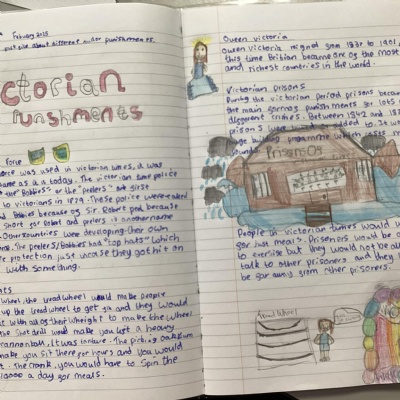 February 2025
out about different punishments.
Victorian
Punishments
Force
was used in victorian times, it was
same as a a today. The victorian time police
the "Bobbies" or the "peelers" at first
to victorians in 1829. These police were called
and Bobbies because of Sir Robert peel because
short for Robert and peelers is another name
Other countries were developing their own
The peelers/Bobbies had "top hats" which
protection just incase they got hit on
with something.
wheel, the treadwheel would make people
up the treadwheel to get and they would
with all of their wheight to make the wheel
the shot drill would make you lift a heavy
cannonball, it was torture. The picking oakum
make you sit there for hours and you would
The crank, you would have to spin the
10000 a day for meals.
Queen victoria
Queen victoria reigned from 1837 to 1901,
this time Britian became one of the most
and richest countries in the world.
Victorian prisons
During the victorian period prisons became
the main form of punishments for lots of
different crimes. Between 1842 and 1877
prisons were added to. It was
huge building programme which
Prison
People in victorian times would
for just meals. Prisoners would be
to exersise but they would not be
talk to other prisoners and they
be far away from other prisoners.
Tread Wheel